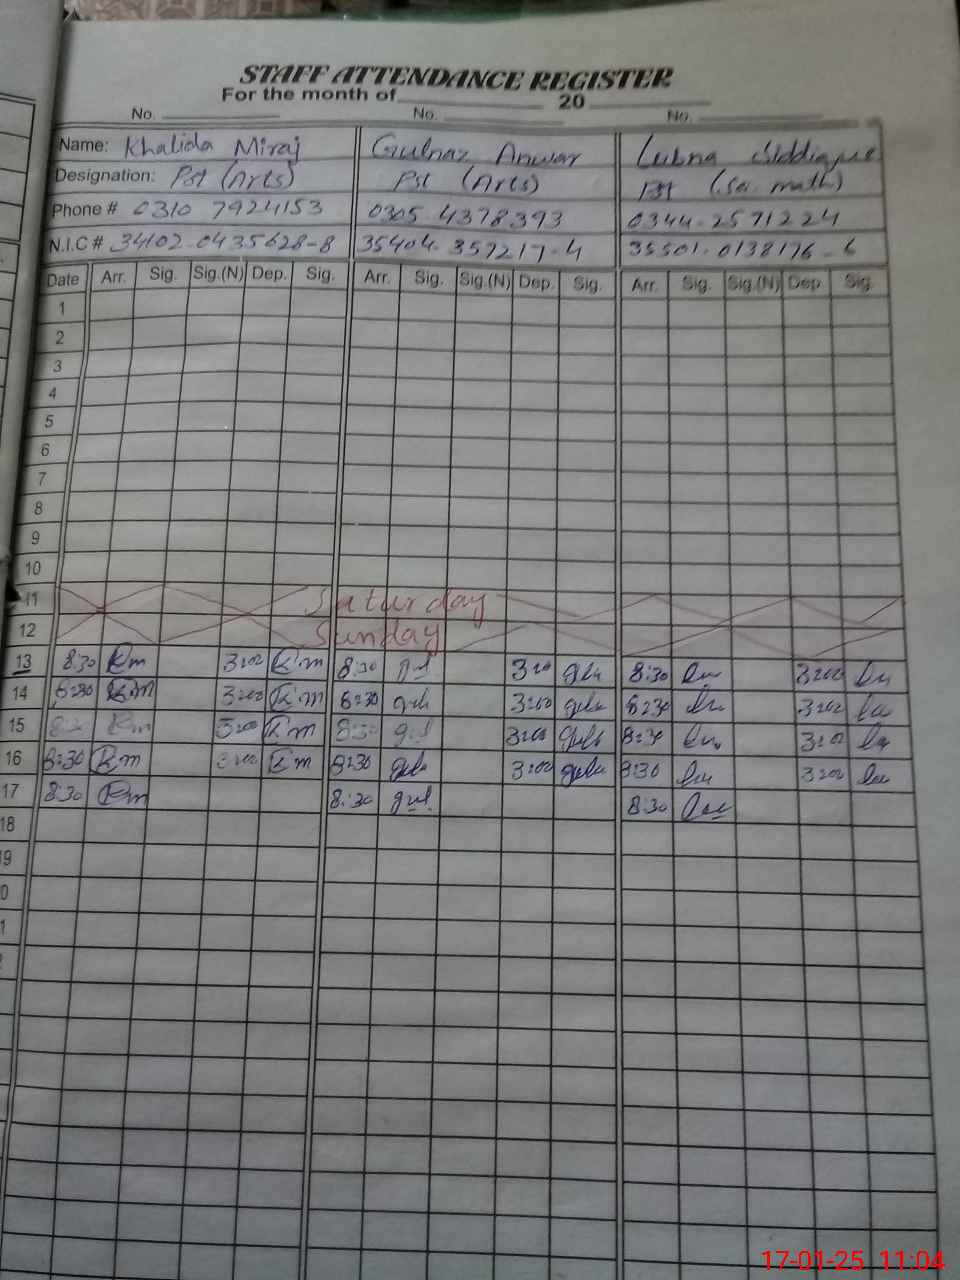 STAFF ATTENDANCE REGISTER
For the month of 20
No. No. No.
Name: Khalida Miraj Gulnaz Anwar Lubna Siddique
Designation: Pst (Arts) Pst (Arts) Pst (Sc. math)
Phone # 0310 7924153 0305-4378393 0344-2571224
N.I.C # 34102-0435628-8 35404-357217-4 35501-0138176-6
Date Arr. Sig. Sig.(N) Dep. Sig. Arr. Sig. Sig.(N) Dep. Sig. Arr. Sig. Sig.(N) Dep Sig.
1
2
3
4
5
6
7
8
9
10
11 Saturday
12 Sunday
13 8:30 Km 3:00 K.m 8:30 gul 3:00 8:30 3:00
14 8:30 Km 3:00 K.m 8:30 3:00 8:30 3:00
15 8:30 Km 3:00 K.m 8:30 gul 3:00 8:30 3:00
16 8:30 Km 3:00 K.m 8:30 3:00 8:30 3:00
17 8:30 Km 8:30 gul 8:30
18
9
0
1
17-01-25 11:04